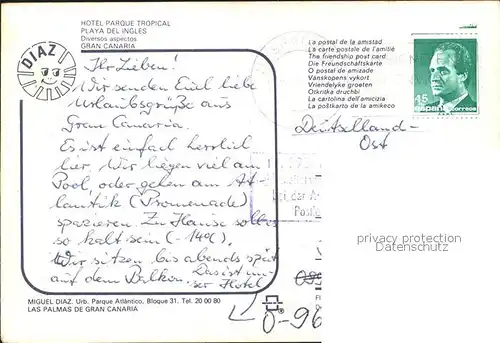 HOTEL PARQUE TROPICAL
PLAYA DEL INGLES
Diversos aspectos
GRAN CANARIA
DIAZ
Ihr Lieben!
Wir senden Euch liebe
Urlaubsgrüße aus
Gran Canaria.
Es ist einfach herrlich
hier. Wir liegen viel am
Pool, oder gehen am At-
lantik (Promenade)
spazieren. Zu Hause soll es
so kalt sein (-14°).
Wir sitzen bis abends spät
auf dem Balkon. Das ist un-
ser Hotel
MIGUEL DIAZ. Urb. Parque Atlántico, Bloque 31. Tel. 20 00 80
LAS PALMAS DE GRAN CANARIA
La postal de la amistad
La carte postale de l'amitié
The friendship post card
Die Freundschaftskarte
O postal de amizade
Vänskapens vykort
Vriendelyke groeten
Otkritka druchbi
La cartolina dell'amicizia
La poŝtkarto de la amikeco
45
España correos
Deutschland-
Ost
privacy protection
Datenschutz
O-96